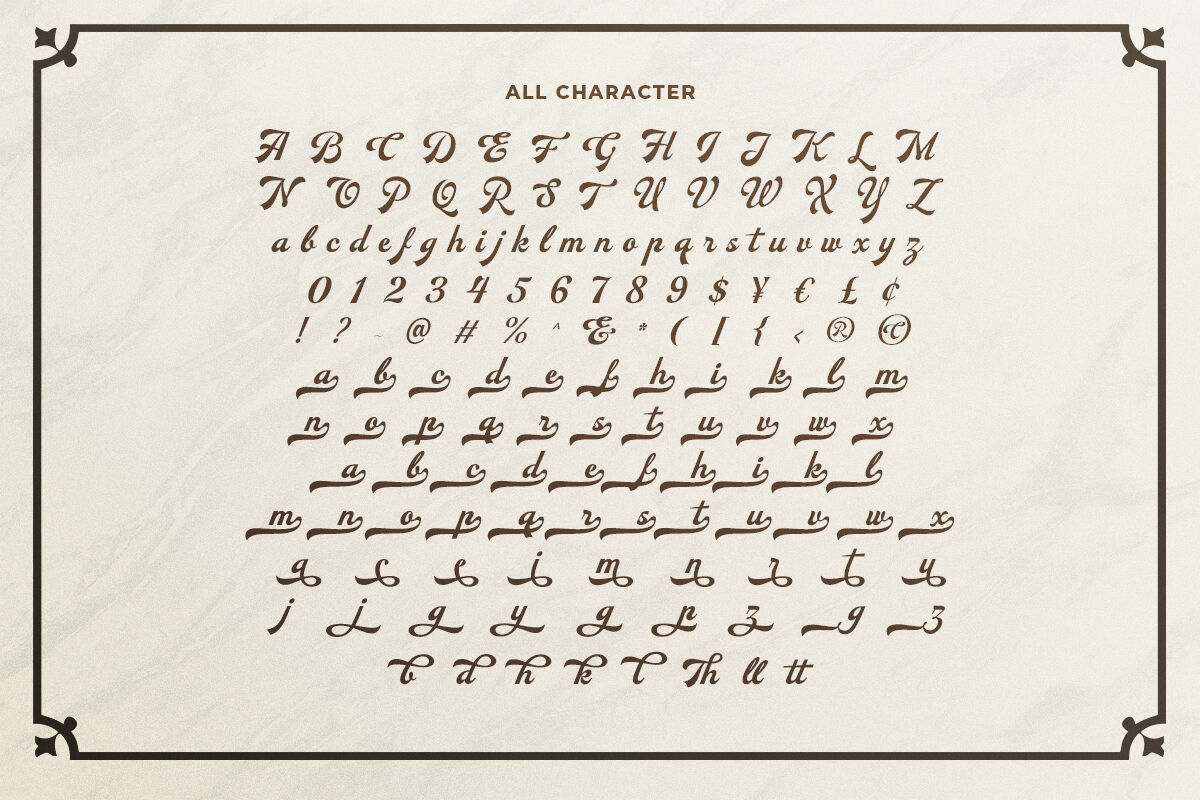 ALL CHARACTER
A B C D E F G H I J K L M
N O P Q R S T U V W X Y Z
a b c d e f g h i j k l m n o p q r s t u v w x y z
0 1 2 3 4 5 6 7 8 9 $ ¥ € £ ¢
! ? ~ @ # % ^ & * ( [ { < ® ©
a b c d e f h i k l m
n o p q r s t u v w x
a b c d e f h i k l
m n o p q r s t u v w x
a c e i m n r t u
j j g y g p z g z
b d h k l Th ll tt